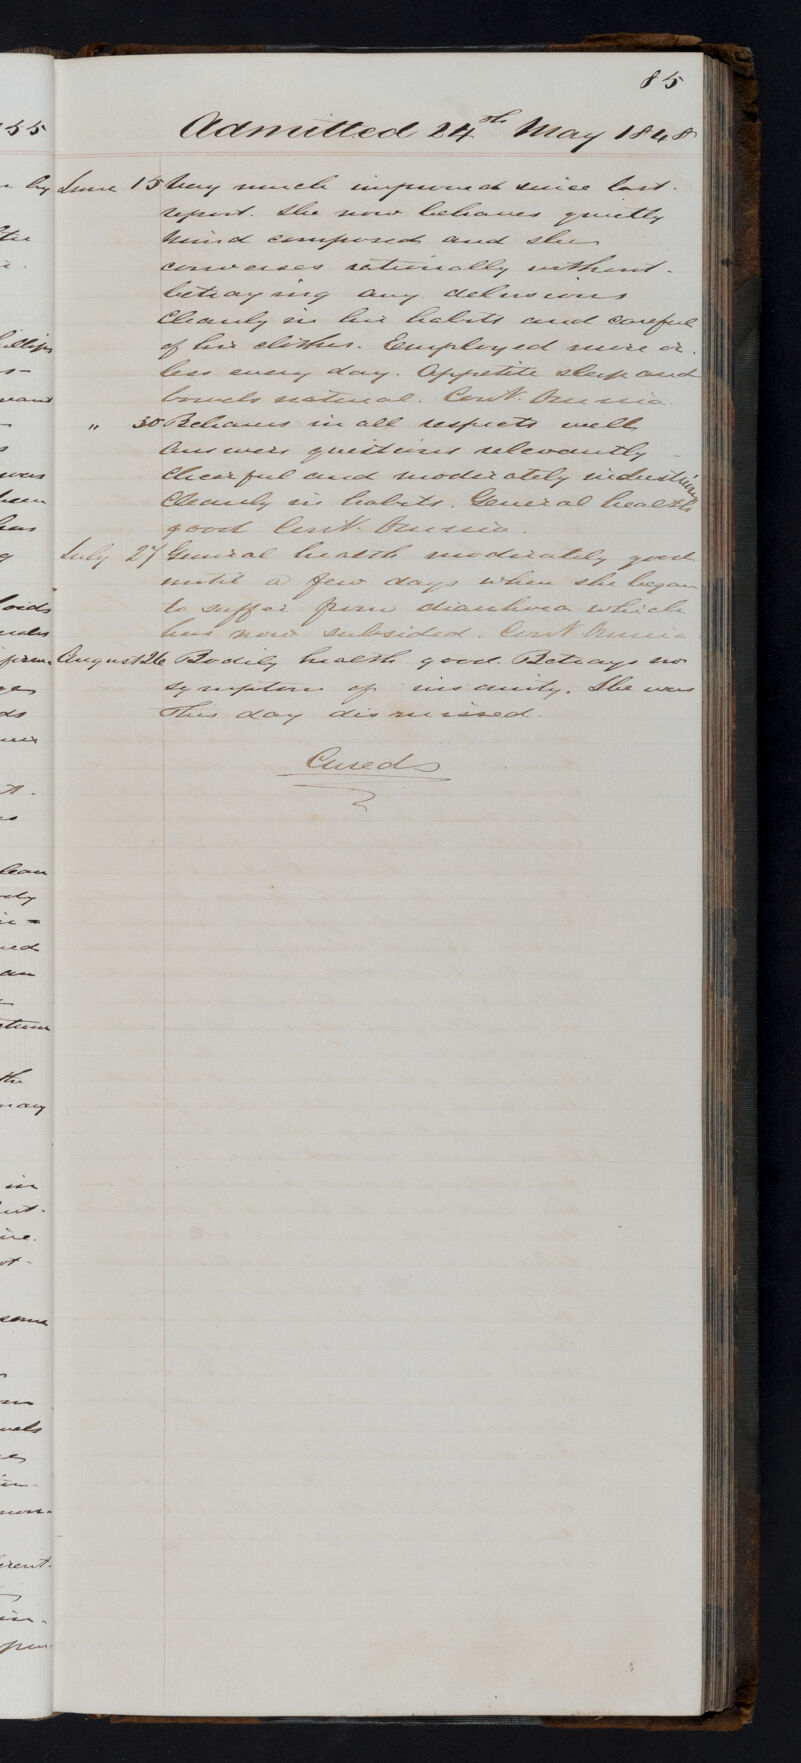 85
Admitted 24th May 1848
June 15 Very much improved since last
report. She now behaves quietly
Mind composed and she
converses rationally without
betraying any delusions
Cleanly in her habits and careful
of her clothes. Employed more or
less every day. Appetite sleep and
bowels natural. Cont. Omnia
" 30 Behaves in all respects well
Answers questions relevantly
Cheerful and moderately industrious
Cleanly in habits. General health
good Cont. Omnia.
July 27 General health moderately good
until a few days when she began
to suffer from diarrhoea which
has now subsided. Cont Omnia
August 26 Bodily health good. Betrays no
symptom of insanity. She was
this day dismissed.
Cured